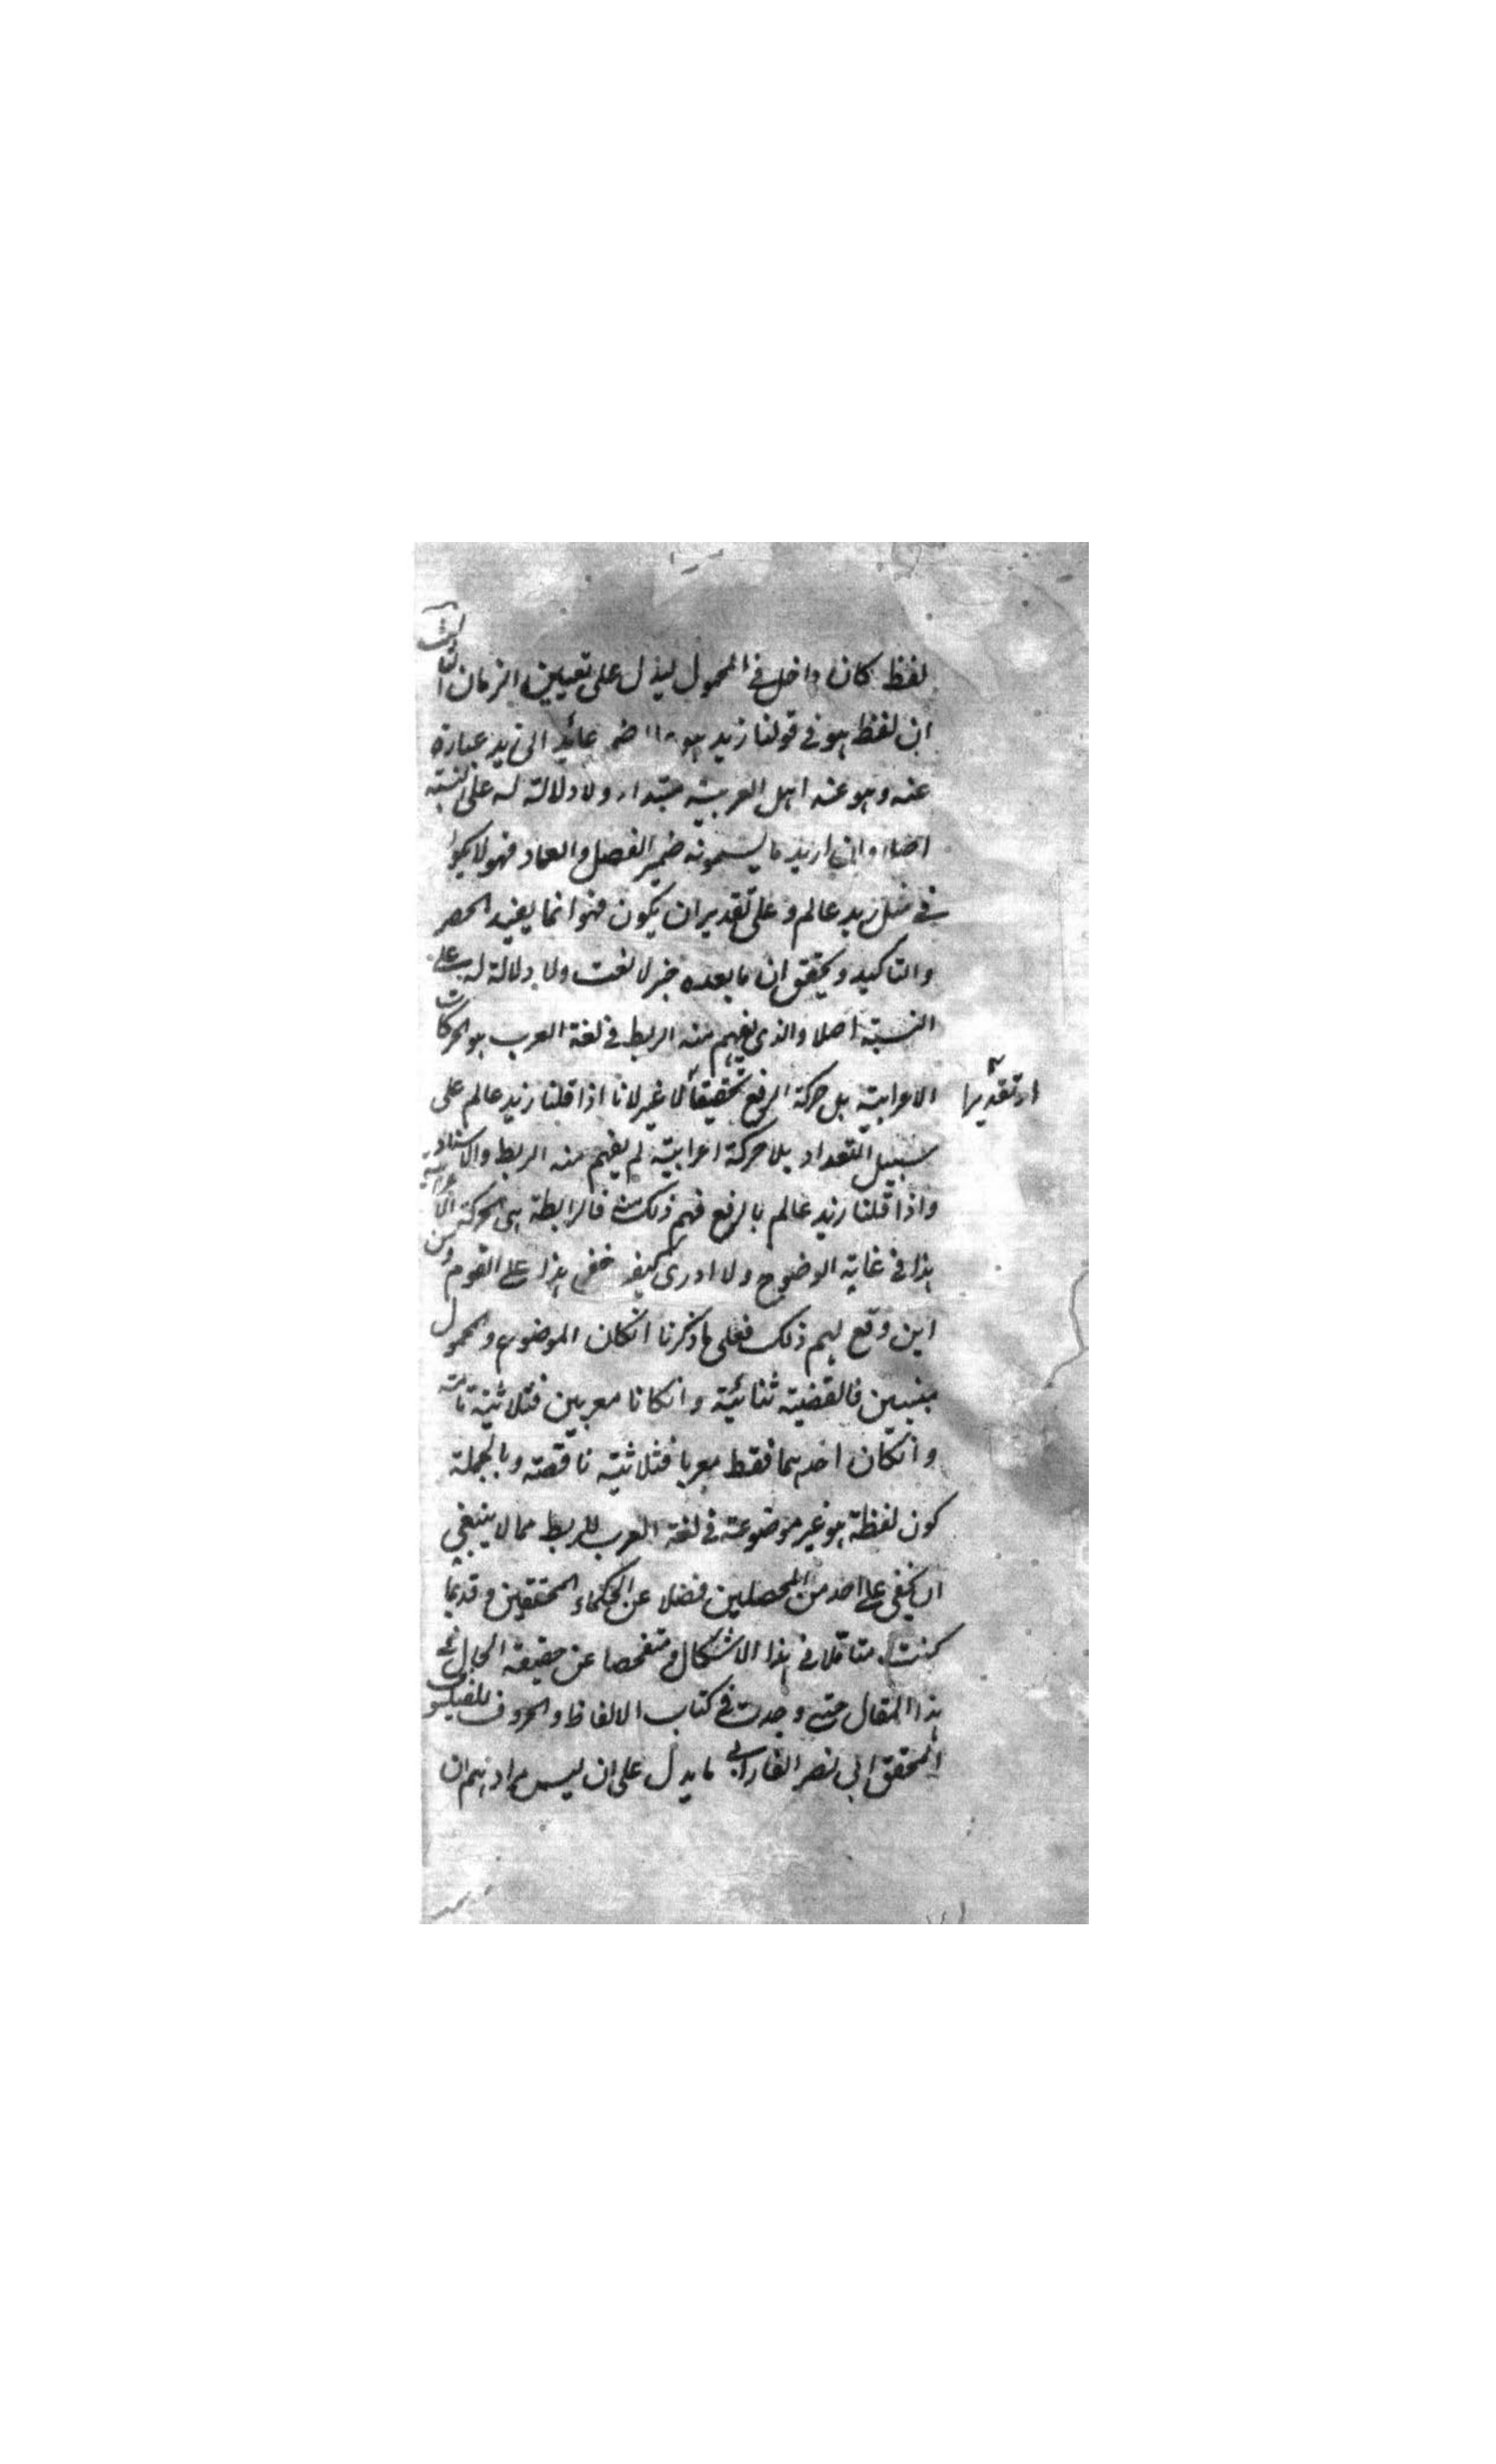 لفظ كان داخل في المحمول ليدل على تعيين الزمان الثالث
ان لفظ هو في قولنا زيد هو عالم ضمير عائد الى زيد عبارة
عنه وهو عند اهل العربية مبتداء ولا دلالة له على النسبة
اصلا وان اريد ما يسمونه ضمير الفصل والعماد فهو لا يكون
في مثل زيد عالم وعلى تقدير ان يكون فهو انما يفيد الحصر
والتاكيد ويحقق ان ما بعده خبر لا نعت ولا دلالة له على
النسبة اصلا والذي يفهم منه الربط في لغة العرب هو الحركات
الاعرابية بل حركة الرفع تحقيقا لا غير لانا اذا قلنا زيد عالم على
او تقديرا
سبيل التعداد بلا حركة اعرابية لم يفهم منه الربط والاسناد
واذا قلنا زيد عالم بالرفع فهم ذلك منه فالرابطة هي الحركة الاعرابية
هذا في غاية الوضوح ولا ادري كيف خفي هذا على القوم ومن
اين وقع لهم ذلك فعلى ما ذكرنا انكان الموضوع والمحمول
مبنيين فالقضية ثنائية وانكانا معربين فثلاثية تامة
وانكان احدهما فقط معربا فثلاثية ناقصة وبالجملة
كون لفظة هو غير موضوعة في لغة العرب للربط مما لا ينبغي
ان يخفى على احد من المحصلين فضلا عن الحكماء المحققين وقديما
كنت متاملا في هذا الاشكال ومتفحصا عن حقيقة الحال في
هذا المقال حتى وجدت في كتاب الالفاظ والحروف للفيلسوف
المحقق ابي نصر الفارابي ما يدل على ان ليس مرادهم ان